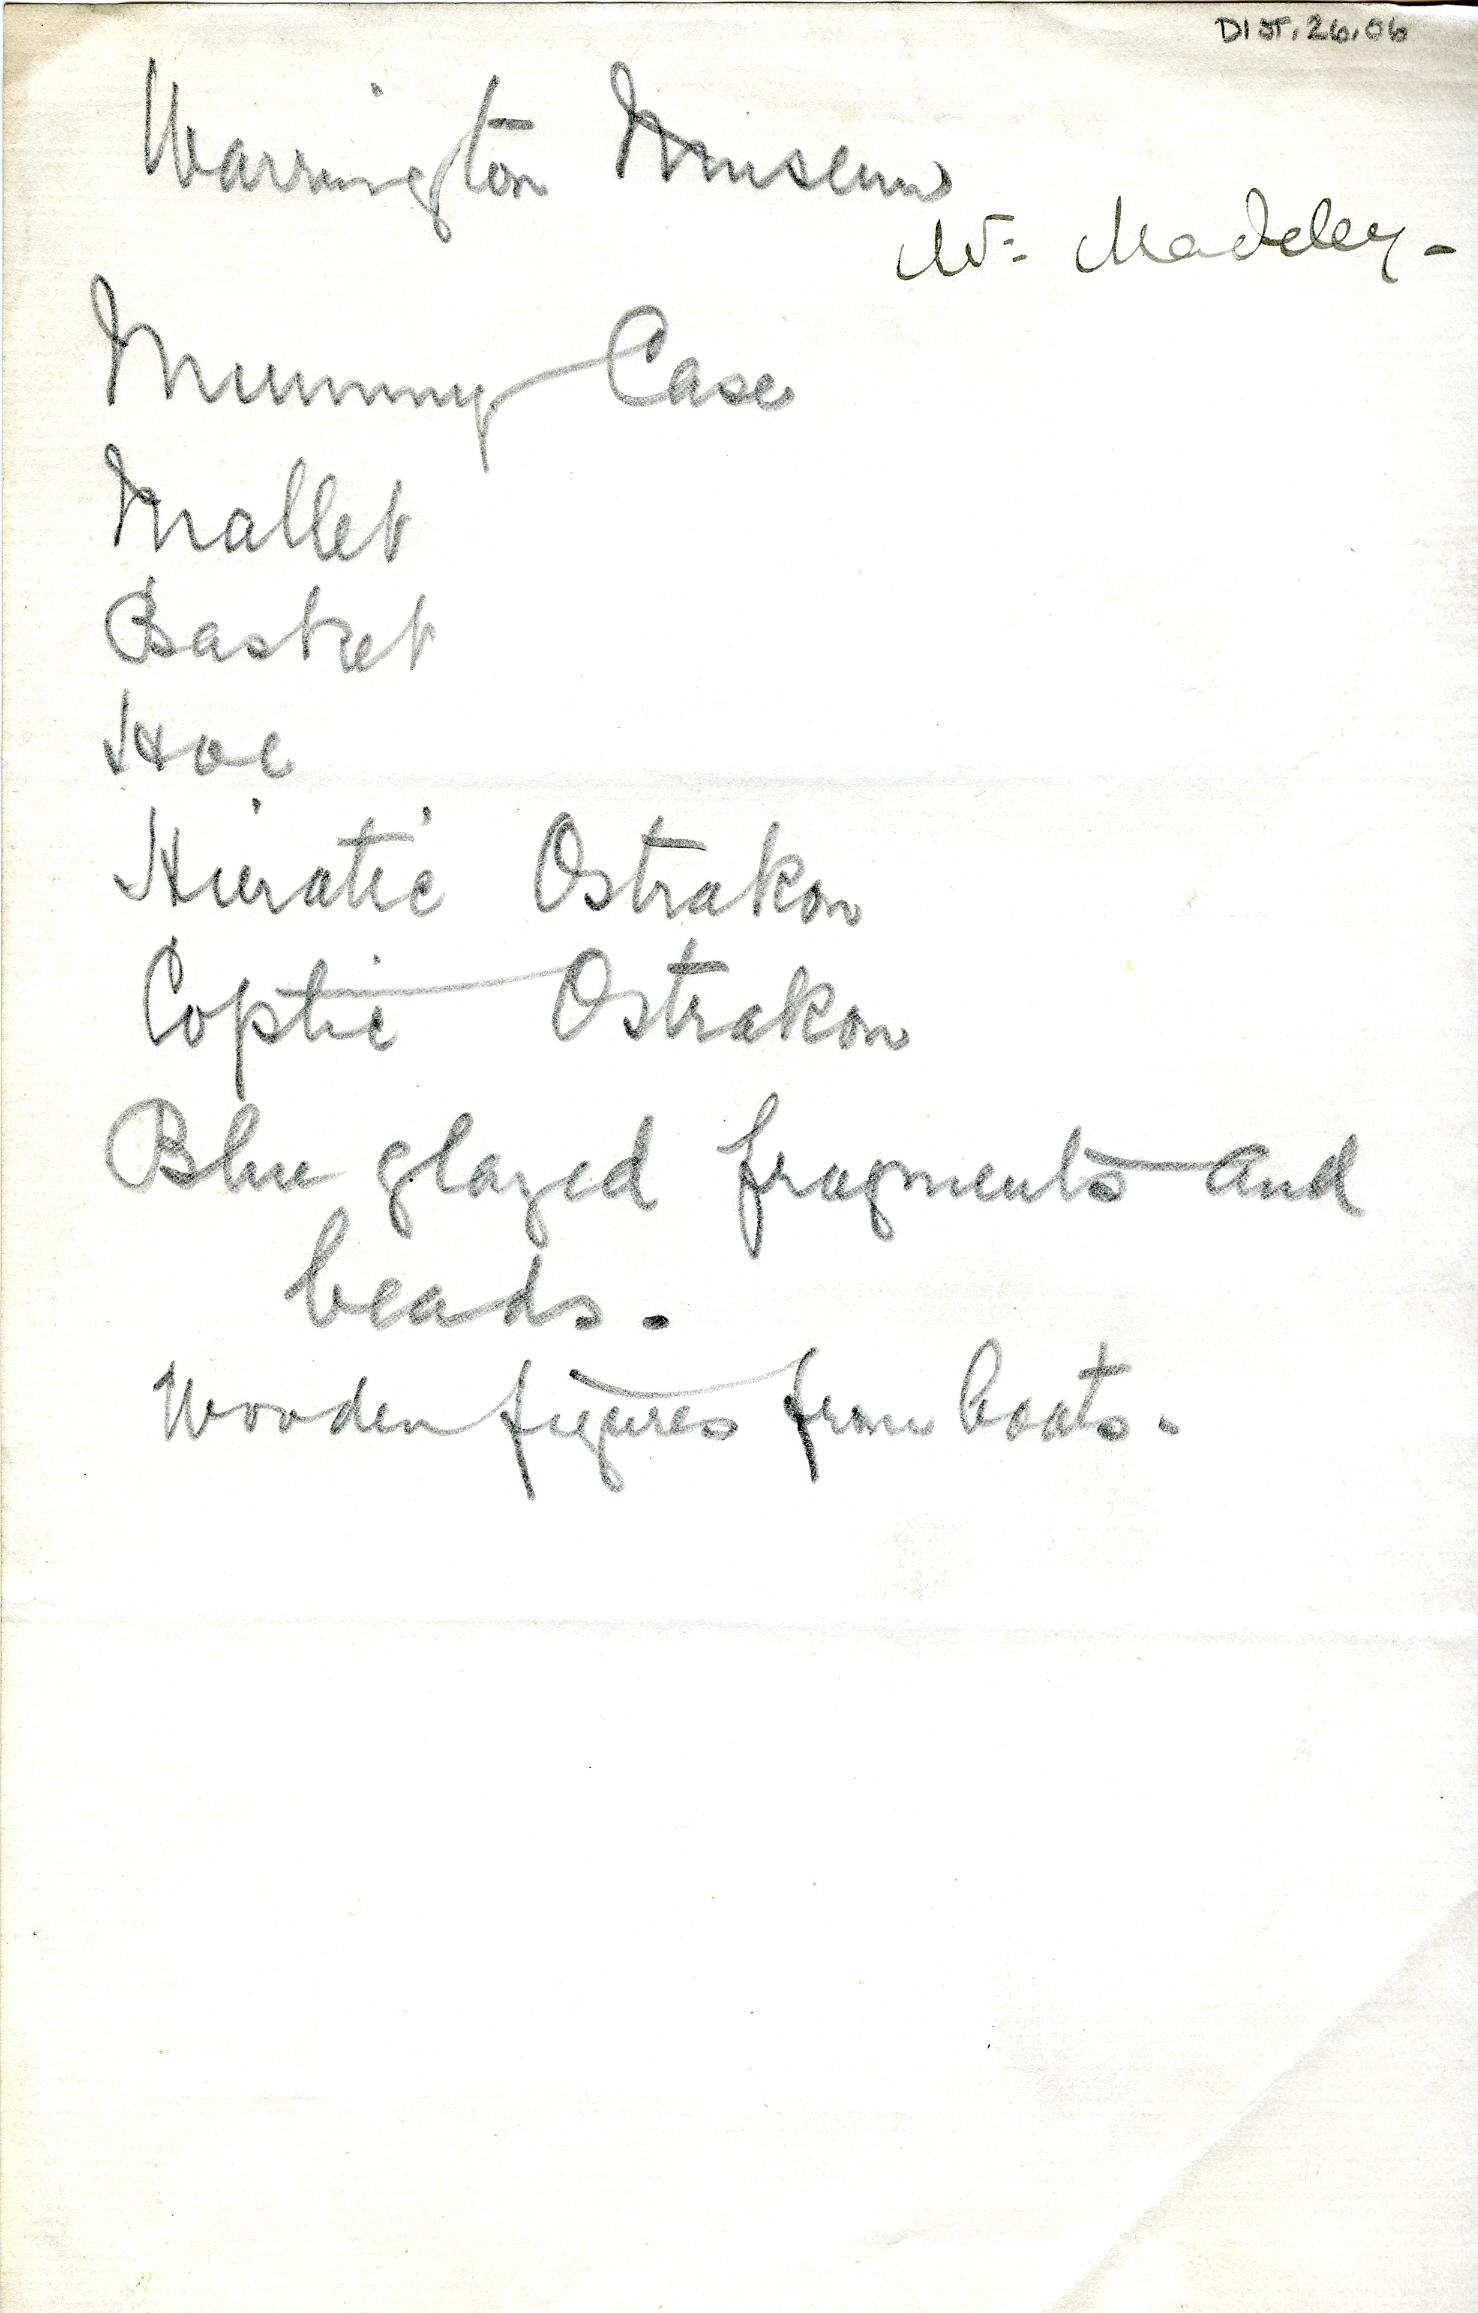 DIST. 26.06
Warrington Museum
Mr Madeley -
Mummy Case
Mallet
Basket
Hoe
Hieratic Ostrakon
Coptic Ostrakon
Blue glazed fragments and
beads.
Wooden figures from boats.